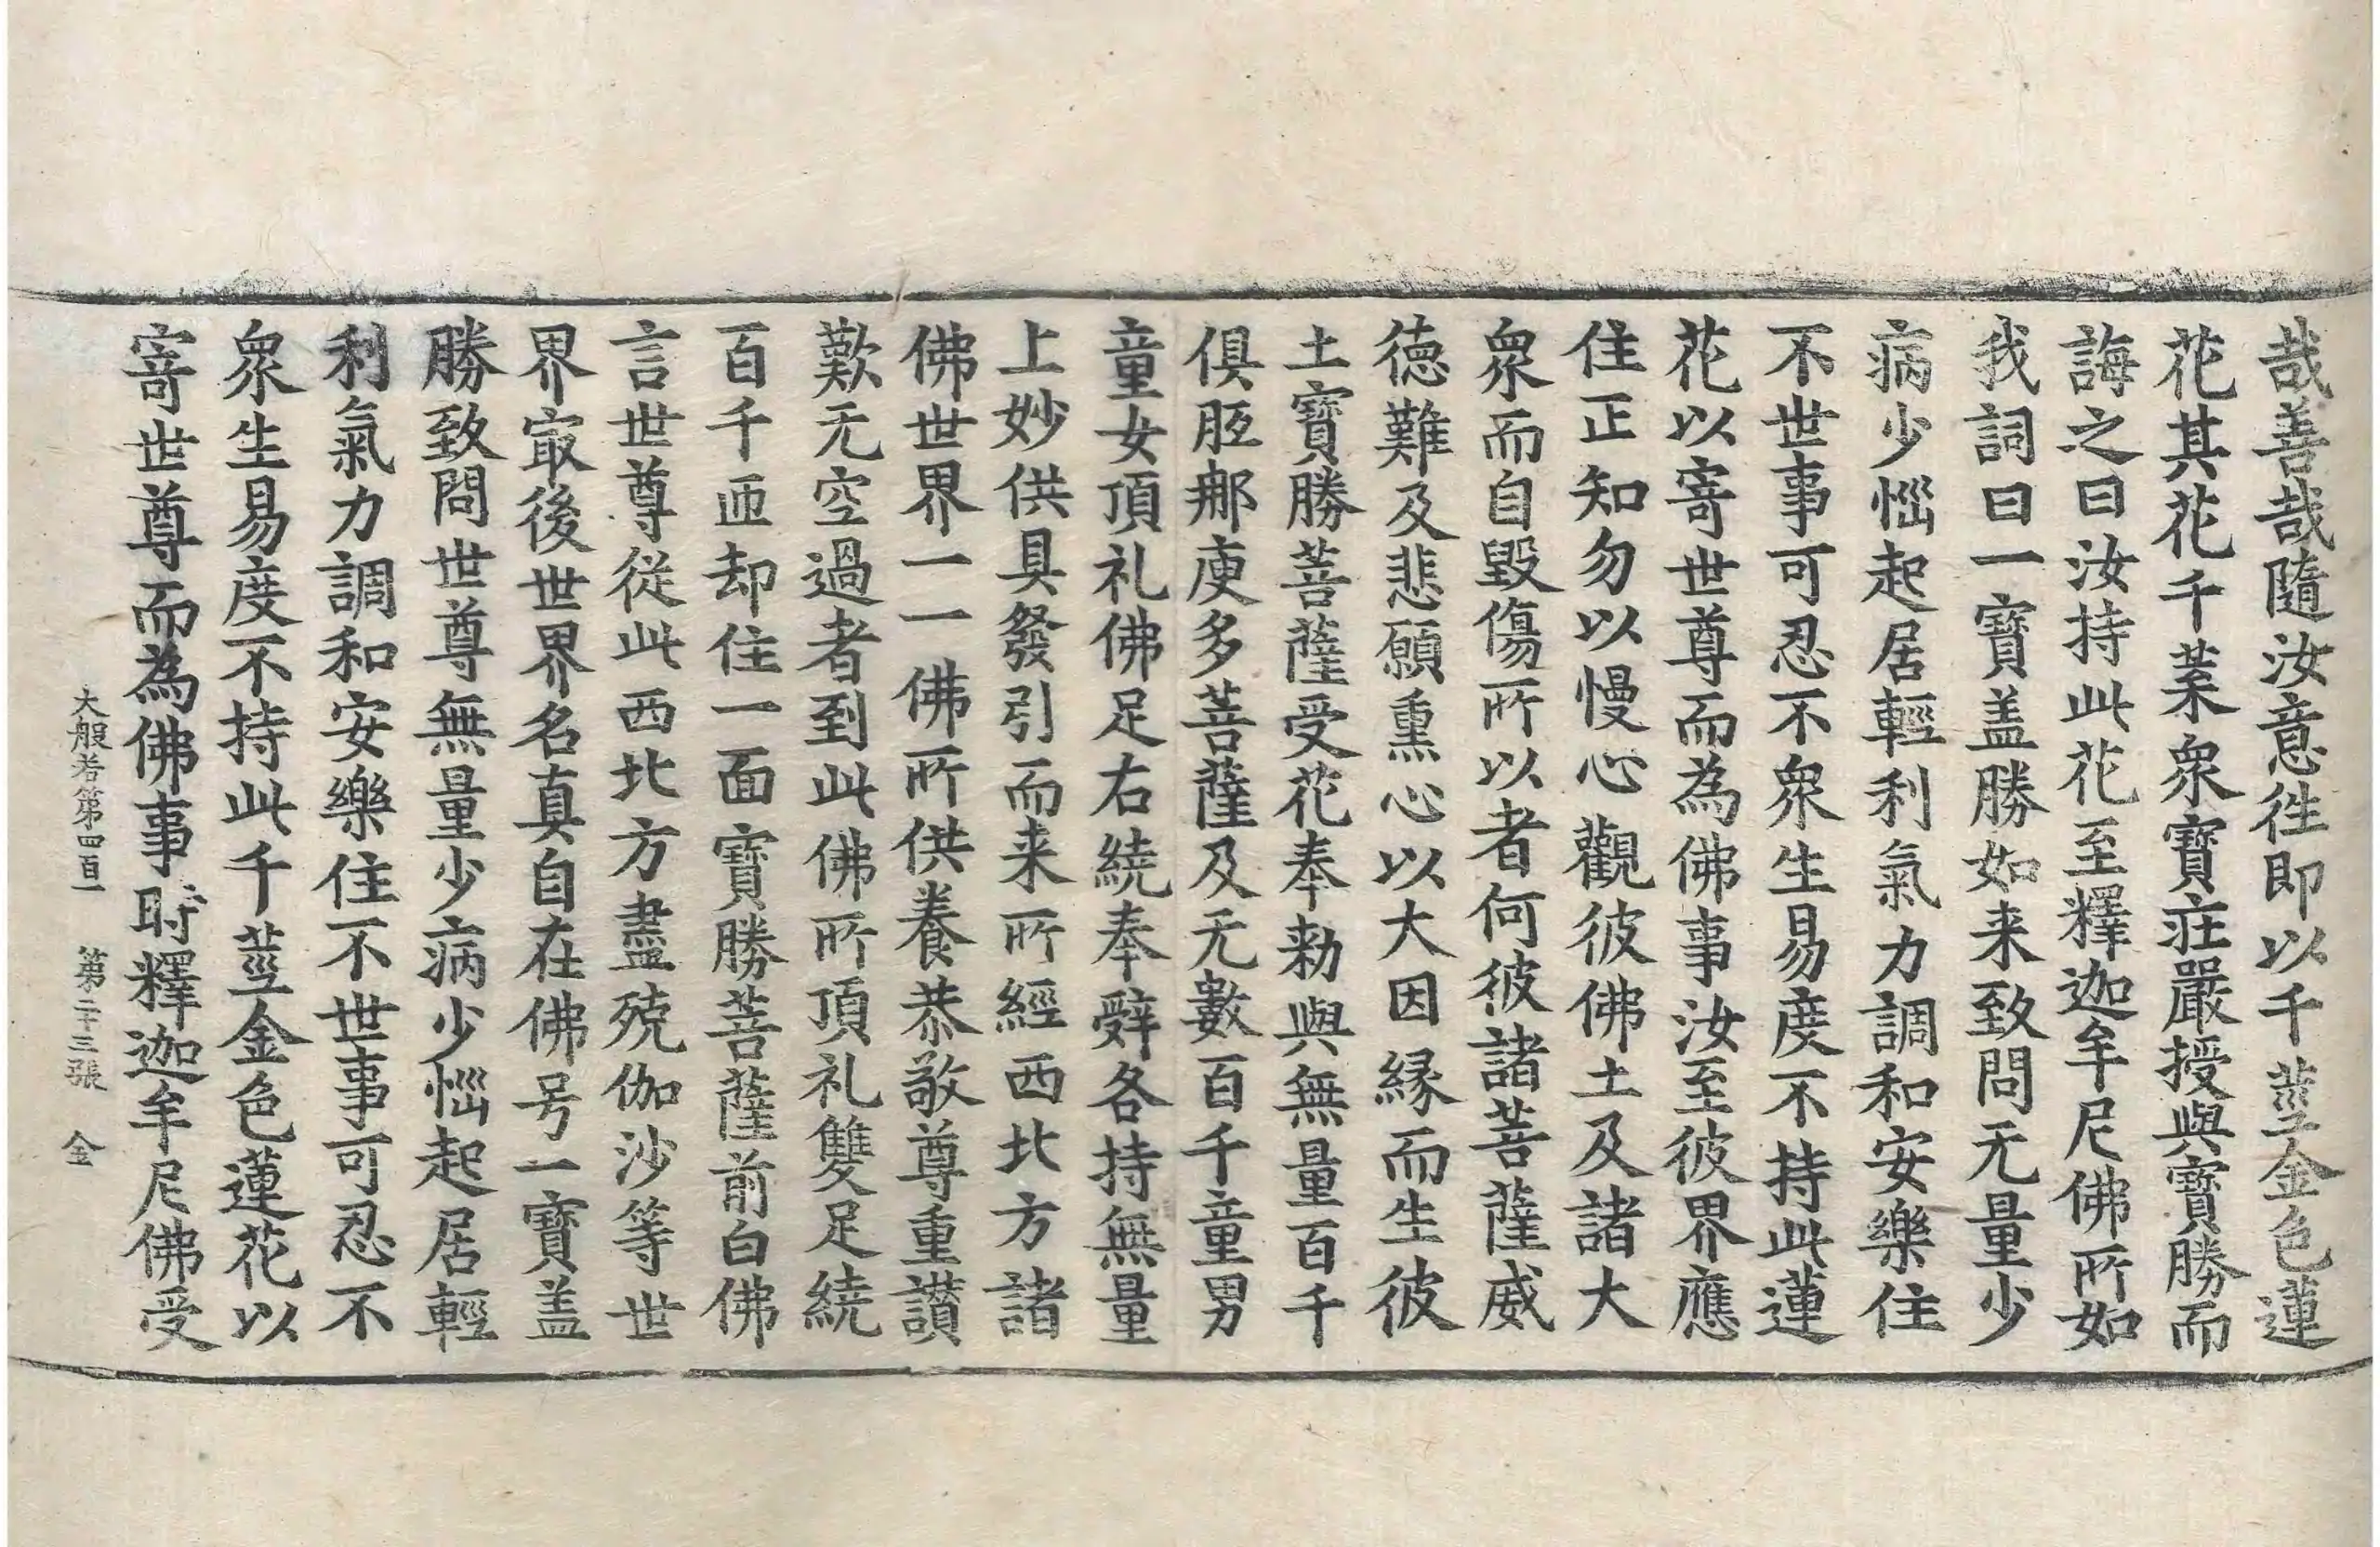 哉善哉隨汝意徃即以千莖金色蓮
花其花千葉衆寶莊嚴授與寶勝而
誨之曰汝持此花至釋迦牟尼佛所如
我詞曰一寶盖勝如来致問无量少
病少惱起居輕利氣力調和安樂住
不世事可忍不衆生易度不持此蓮
花以寄世尊而為佛事汝至彼界應
住正知勿以慢心觀彼佛土及諸大
衆而自毀傷所以者何彼諸菩薩威
德難及悲願熏心以大因縁而生彼
土寶勝菩薩受花奉勑與無量百千
俱胝那庾多菩薩及无數百千童男
童女頂礼佛足右繞奉辤各持無量
上妙供具發引而来所經西北方諸
佛世界一一佛所供養恭敬尊重讃
歎无空過者到此佛所頂礼雙足繞
百千匝却住一面寶勝菩薩前白佛
言世尊從此西北方盡殑伽沙等世
界㝡後世界名真自在佛号一寶盖
勝致問世尊無量少病少惱起居輕
利氣力調和安樂住不世事可忍不
衆生易度不持此千莖金色蓮花以
寄世尊而為佛事時釋迦牟尼佛受
大般若第四百一 第二十三張 金